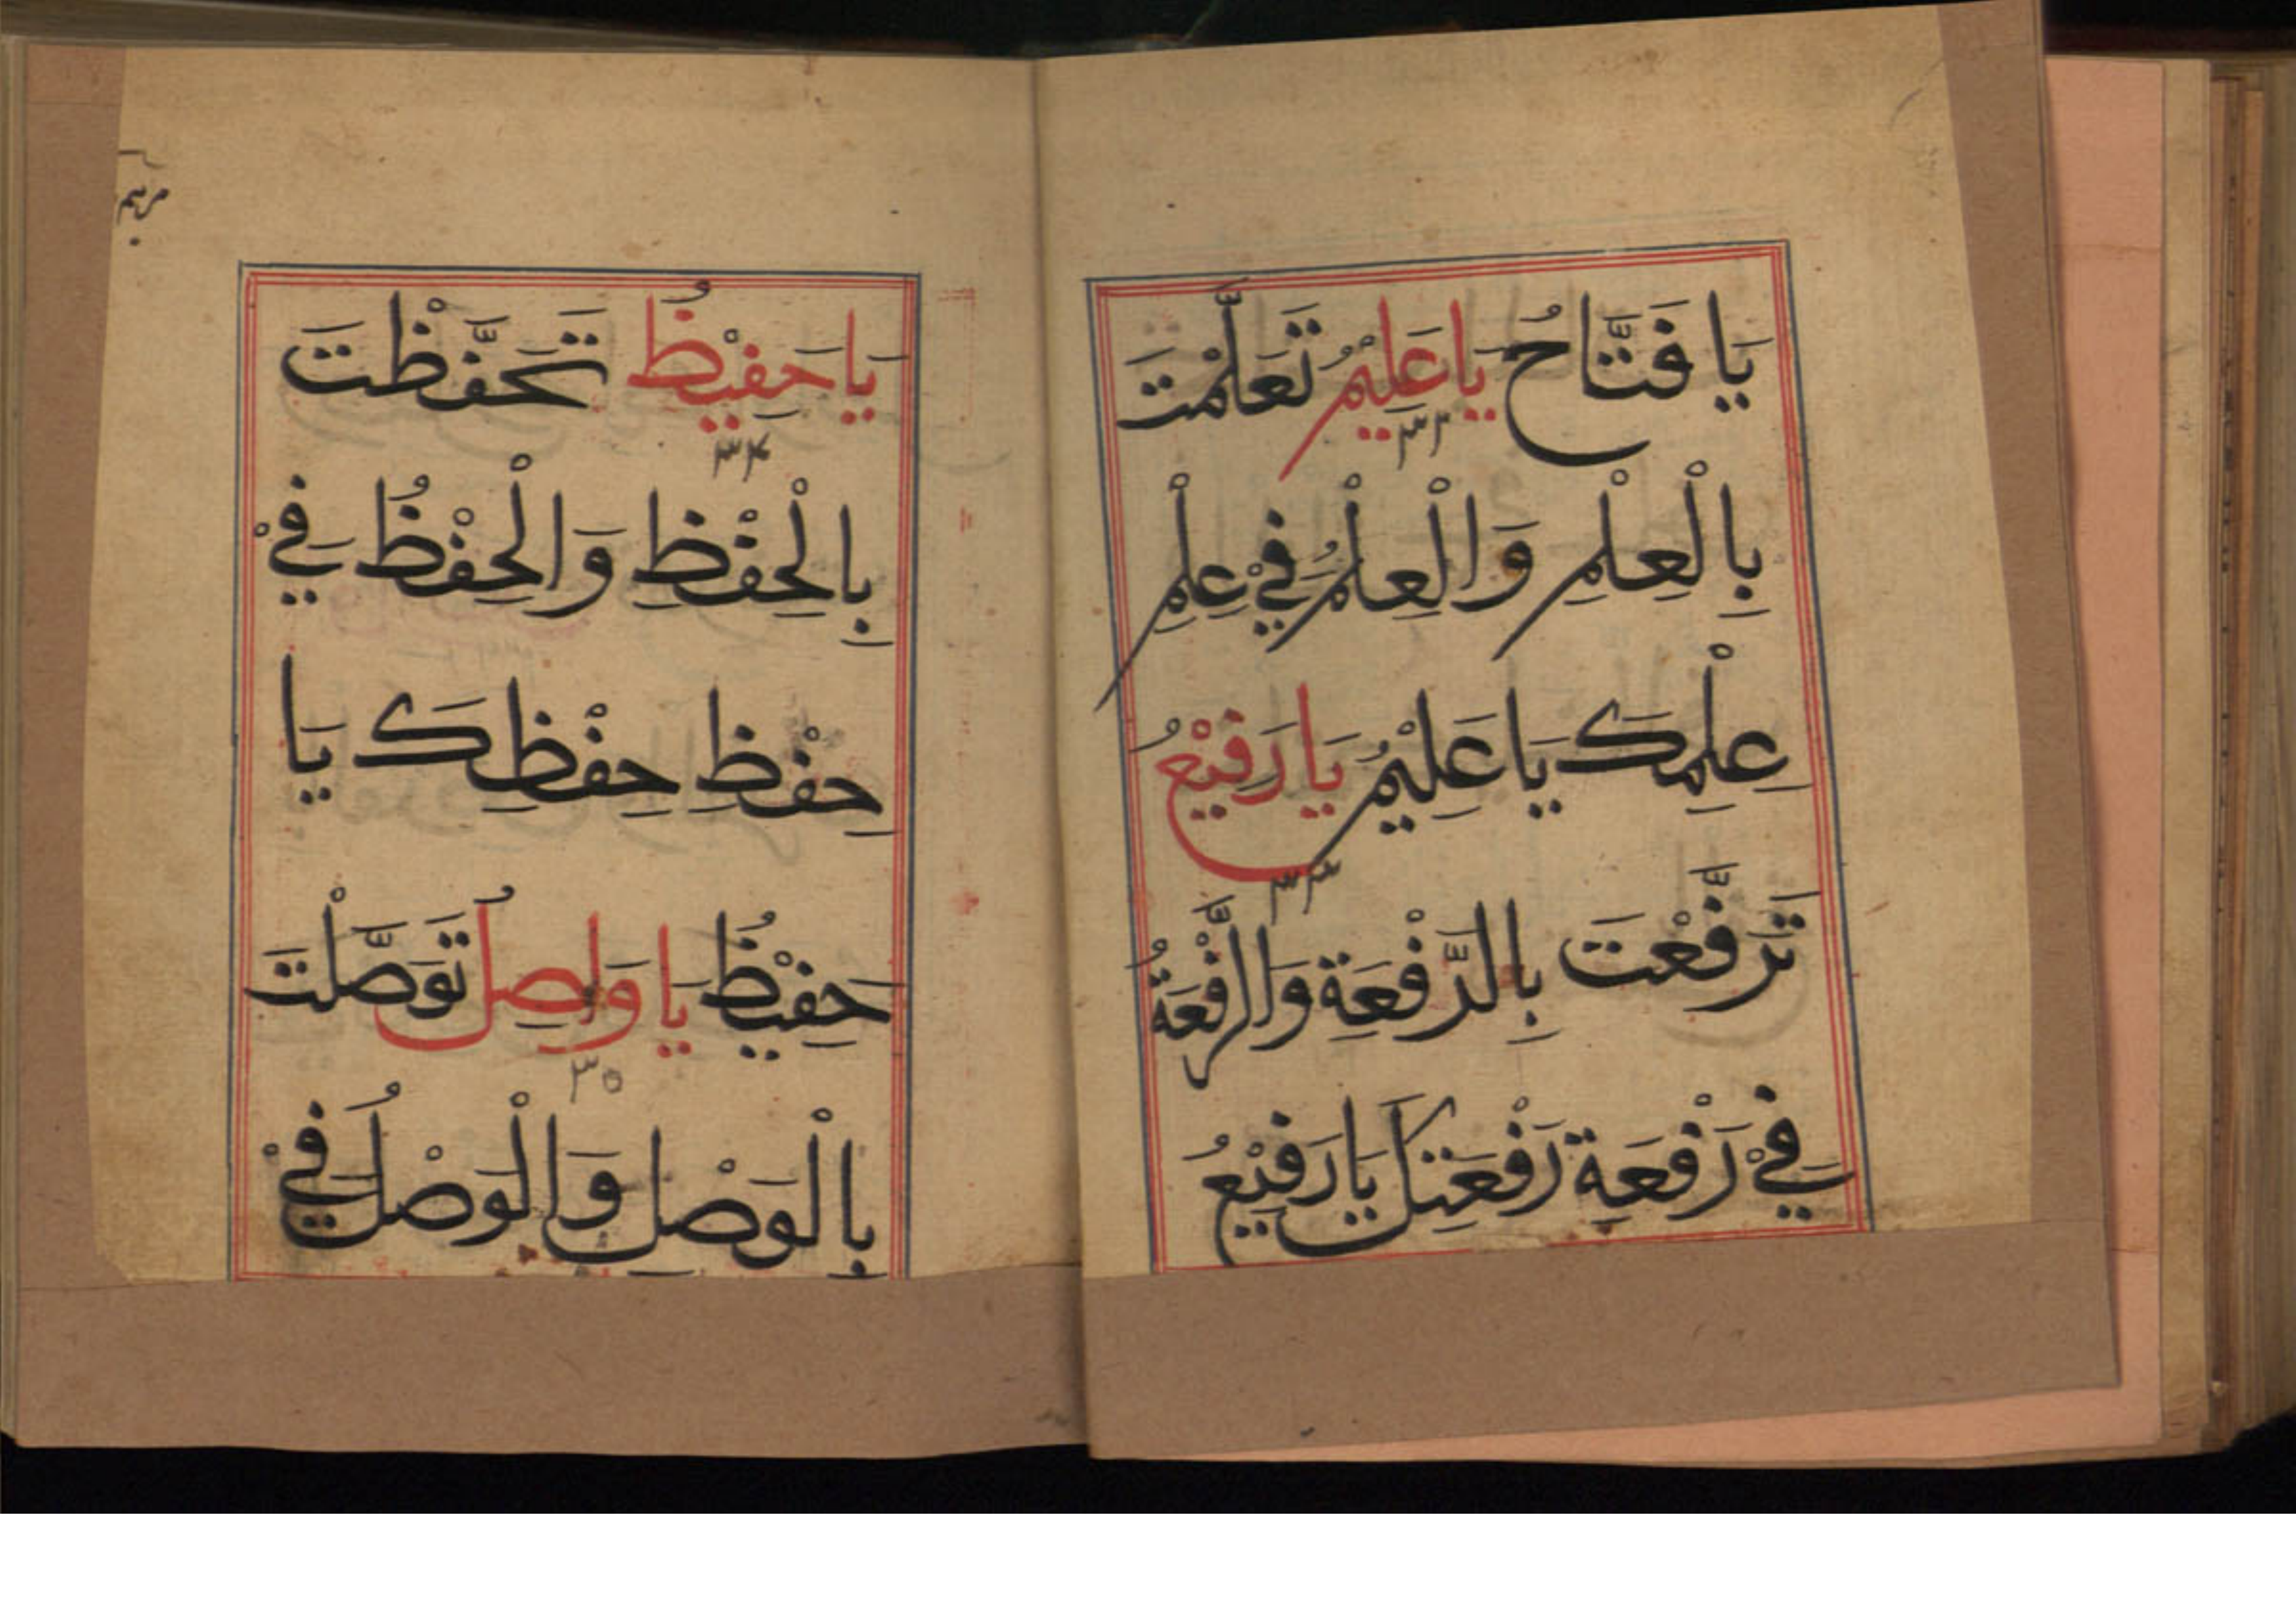 يَا فَتَّاحُ يَا عَلِيْمُ تَعَلَّمْتَ
٣٢
بِالْعِلْمِ وَالْعِلْمُ فِيْ عِلْمِ
عِلْمِكَ يَا عَلِيْمُ يَا رَفِيْعُ
٣٣
تَرَفَّعْتَ بِالرَّفْعَةِ وَالرَّفْعَةُ
فِيْ رَفْعَةِ رَفْعَتِكَ يَا رَفِيْعُ
يَا حَفِيْظُ تَحَفَّظْتَ
٣٤
بِالْحِفْظِ وَالْحِفْظُ فِيْ
حِفْظِ حِفْظِكَ يَا
حَفِيْظُ يَا وَاصِلُ تَوَصَّلْتَ
٣٥
بِالْوَصْلِ وَالْوَصْلُ فِيْ